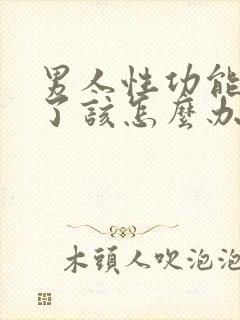 男人性功能
了該怎麼办
木頭人吹泡泡